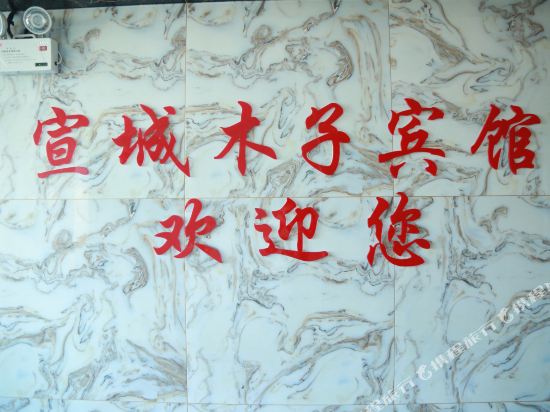 宣城木子宾馆
欢迎您
携程旅行